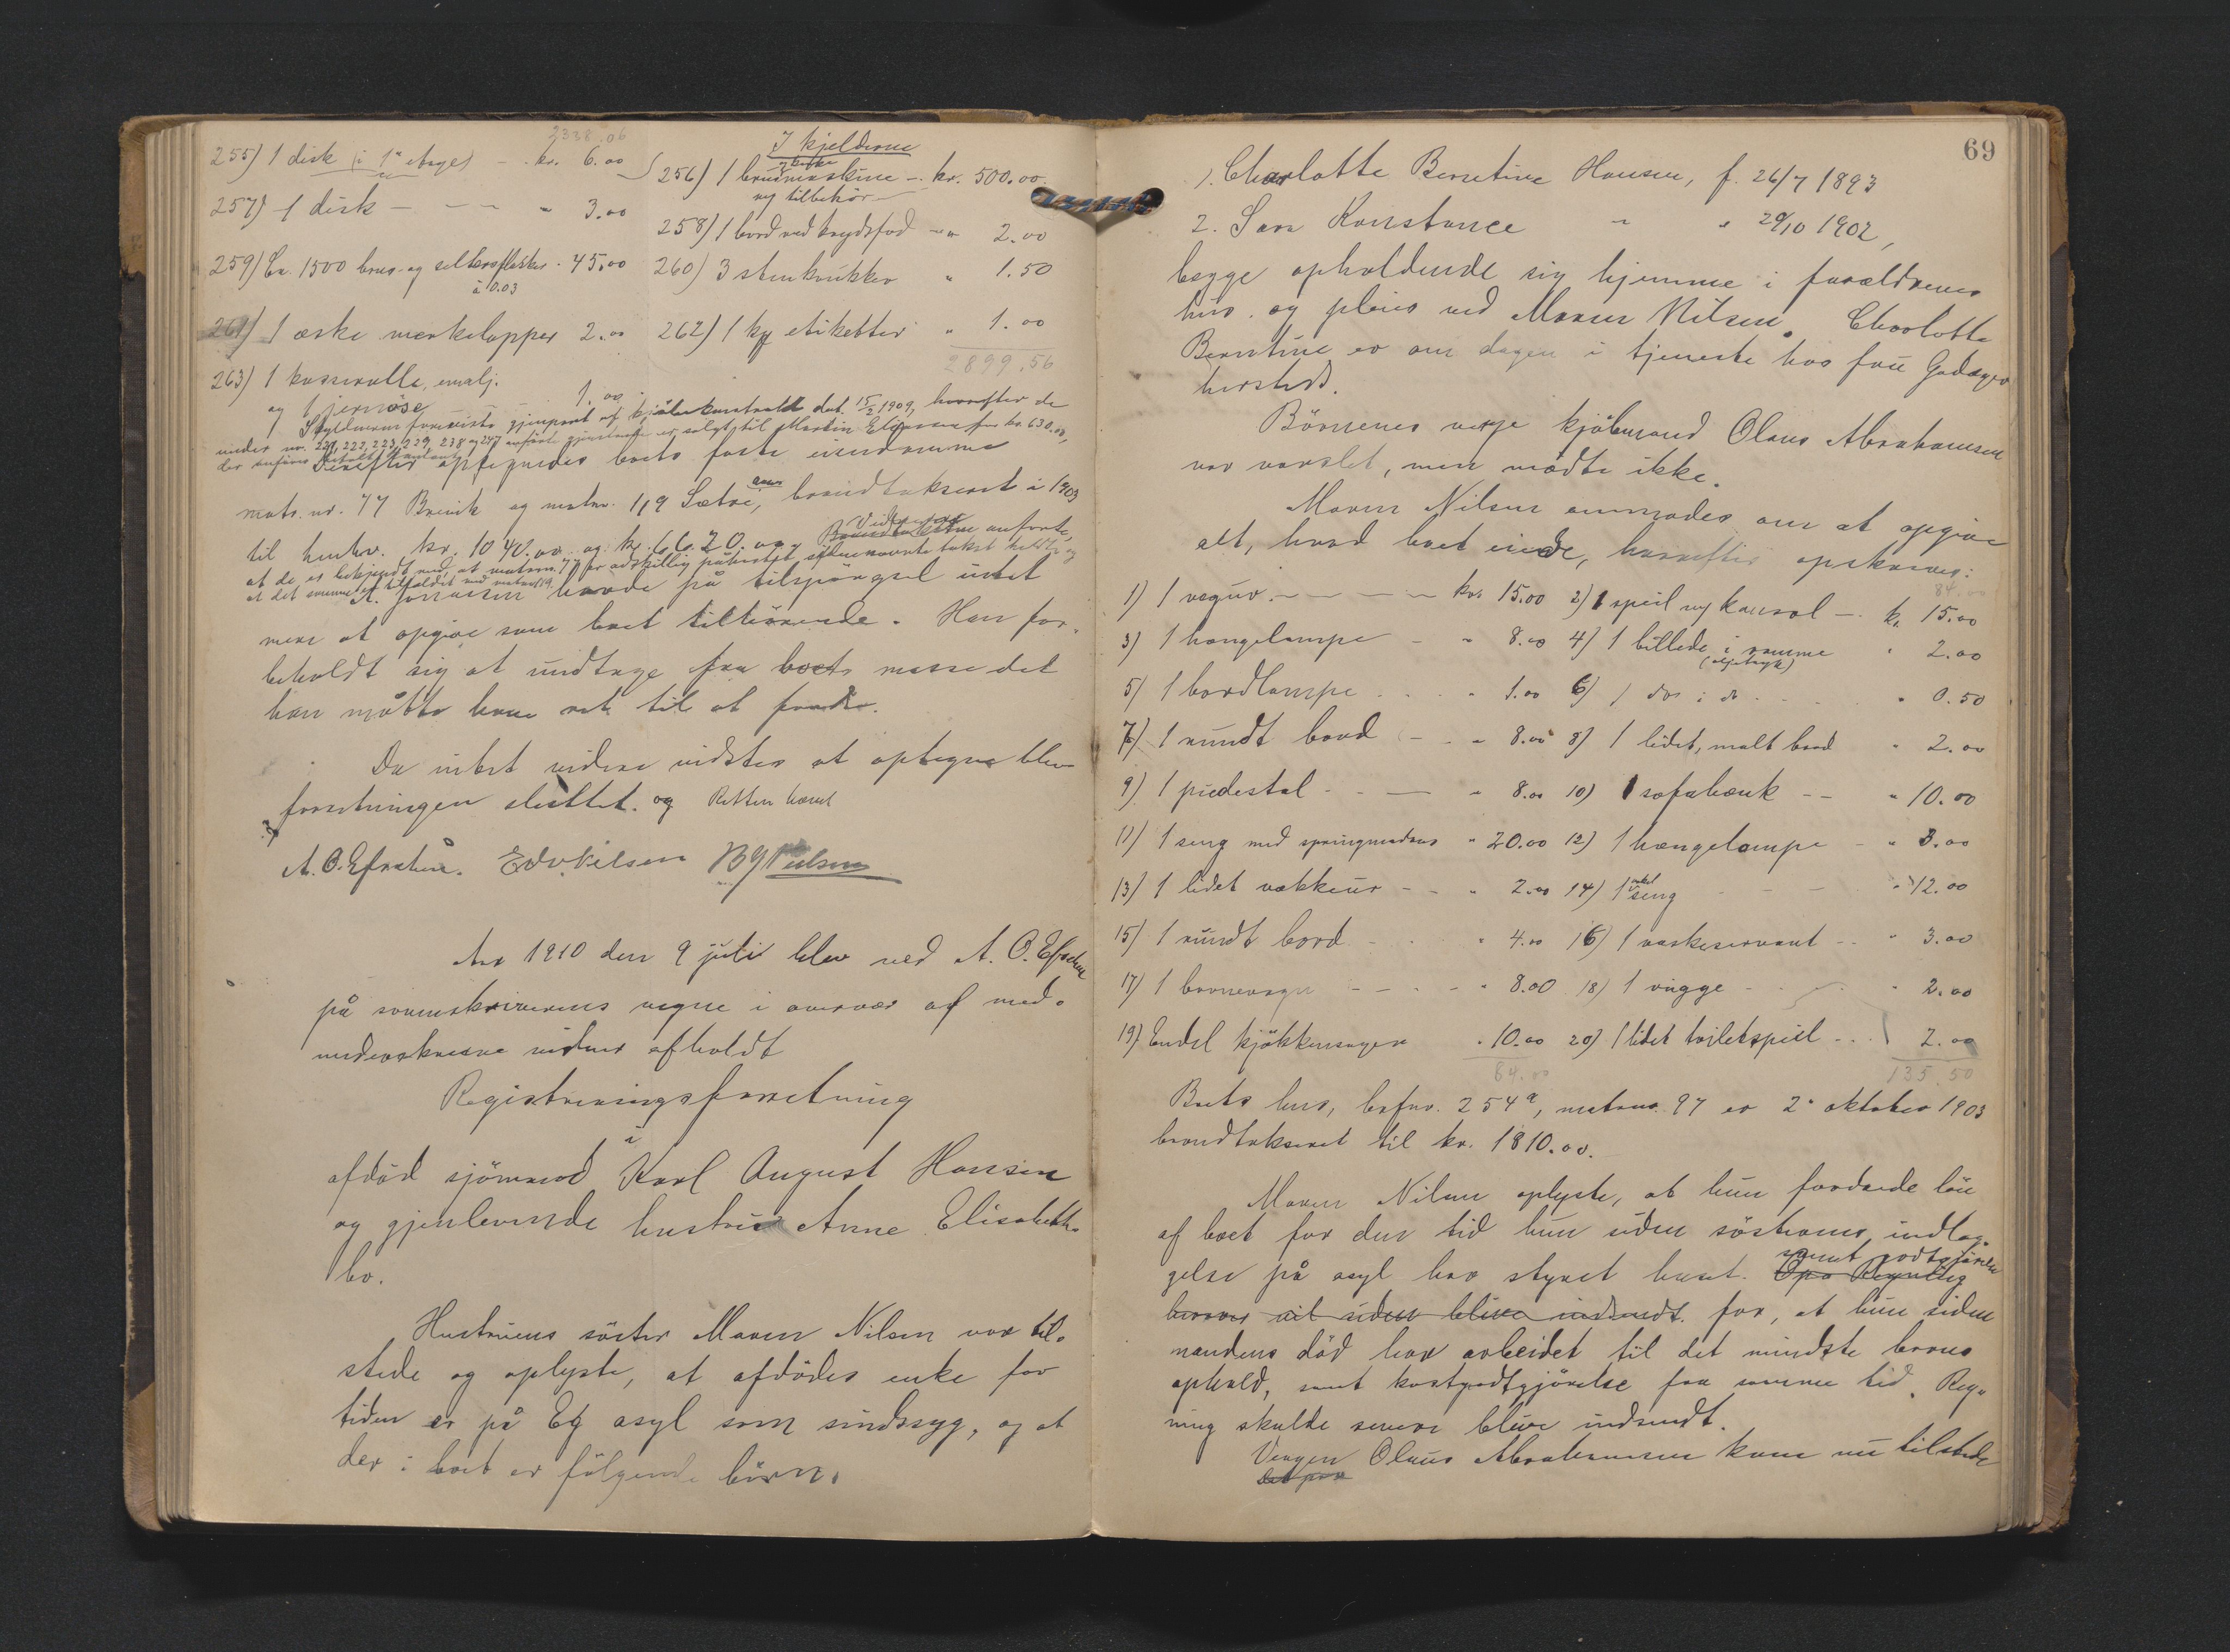 2338.06
255) 1 disk (i 1ste etage) - kr. 6.00
I kjelderne
256) 1 brusmaskine - kr. 500.00
og tilbehör
257) 1 disk - - - " 3.00
258) 1 bord med krydsfod - " 2.00
259) Ca. 1500 brus- og seltersflasker - 45.00
à 0.03
260) 3 stenkrukker " 1.50
261) 1 æske merkelapper 2.00
262) 1 kg etiketter " 1.00
2899.56
263) 1 kasserolle, emalj.
og 1 jernöse 1.00
Skyldneren foreviste gjenpart af kjöbekontrakt dat. 15/2 1909, hvorefter de
under nr. 221, 222, 223, 229, 238 og 247 anförte gjenstande er solgt til Martin Eliassen for kr. 630.00,
der anföres betalt kontant
Derefter optegnedes boets faste eiendomme
matr. nr. 77 Brevik og matnr. 119 Sætre, brandtakseret i 1903
til henhv. kr. 1040.00 og kr. 6620.00. Vidnerne anförte,
at de er bekjendt med, at matrnr. 77 er adskillig påkostet efter nævnte takst holdt og
at det samme er tilfældet med matnr 119.
A. Jonassen havde på tilspörgsel intet
mere at opgive som boet tilhörende. Han for-
beholdt sig at undtage fra boets masse det
han måtte have ret til at fordre.
Da intet videre vidstes at optegne blev
forretningen sluttet og Retten hævet
A. O. Efraim. Edv. Nilsen BJNielsen
Aar 1910 den 9 juli blev ved A. O. Efraim
på sorenskriverens vegne i overvær af med-
underskrevne vidner afholdt
Registreringsforretning
i
afdöd sjömand Karl August Hansen
og gjenlevende hustru Anne Elisabeth
bo.
Hustruens söster Maren Nilsen var til-
stede og oplyste, at afdödes enke for
tiden er på Eg asyl som sindssyg, og at
der i boet er fölgende börn:
69
1. Charlotte Berntine Hansen, f. 26/7 1893
2. Sara Konstance " " 29/10 1902,
begge opholdende sig hjemme i forældrenes
hus og pleies ved Maren Nilsen. Charlotte
Berntine er om dagen i tjeneste hos fru Godager
hersteds.
Börnenes verge kjöbmand Olaus Abrahamsen
var varslet, men mödte ikke.
Maren Nilsen anmodes om at opgive
alt, hvad boet eiede, hvorefter opskreves:
84.00
1) 1 vægur - - - - kr. 15.00 2) 1 speil og konsol - kr. 15.00
3) 1 hængelampe - " 8.00 4) 1 billede i ramme " 2.00
(oljetryk)
5) 1 bordlampe - " 1.00 6) 1 do i do " 0.50
7) 1 rundt bord - - " 8.00 8) 1 lidet, malt bord " 2.00
9) 1 piedestal - - " 8.00 10) 1 sofabænk - - " 10.00
11) 1 seng med springmadras " 20.00 12) 1 hængelampe - " 3.00
13) 1 lidet vækkeur - - " 2.00 14) 1 enkel seng - - " 12.00
15) 1 rundt bord - " 4.00 16) 1 vaskeservant - " 3.00
17) 1 barnevogn - - - " 8.00 18) 1 vugge - " 2.00
19) Endel kjökkensager " 10.00 20) 1 lidet toiletspeil - 2.00
84.00 135.50
Boets hus, brfnr. 254a, matrnr. 97 er 2 oktober 1903
brandtakseret til kr. 1810.00.
Maren Nilsen oplyste, at hun fordrede lön
af boet for den tid hun siden sösterens indlæg-
gelse på asyl har styret huset samt godtgjörelse
for, at hun siden
mandens död har arbeidet til det mindste barns
ophold, samt kostgodtgjörelse fra samme tid. Reg-
ning skulde senere blive indsendt.
Vergen Olaus Abrahamsen kom nu tilstede